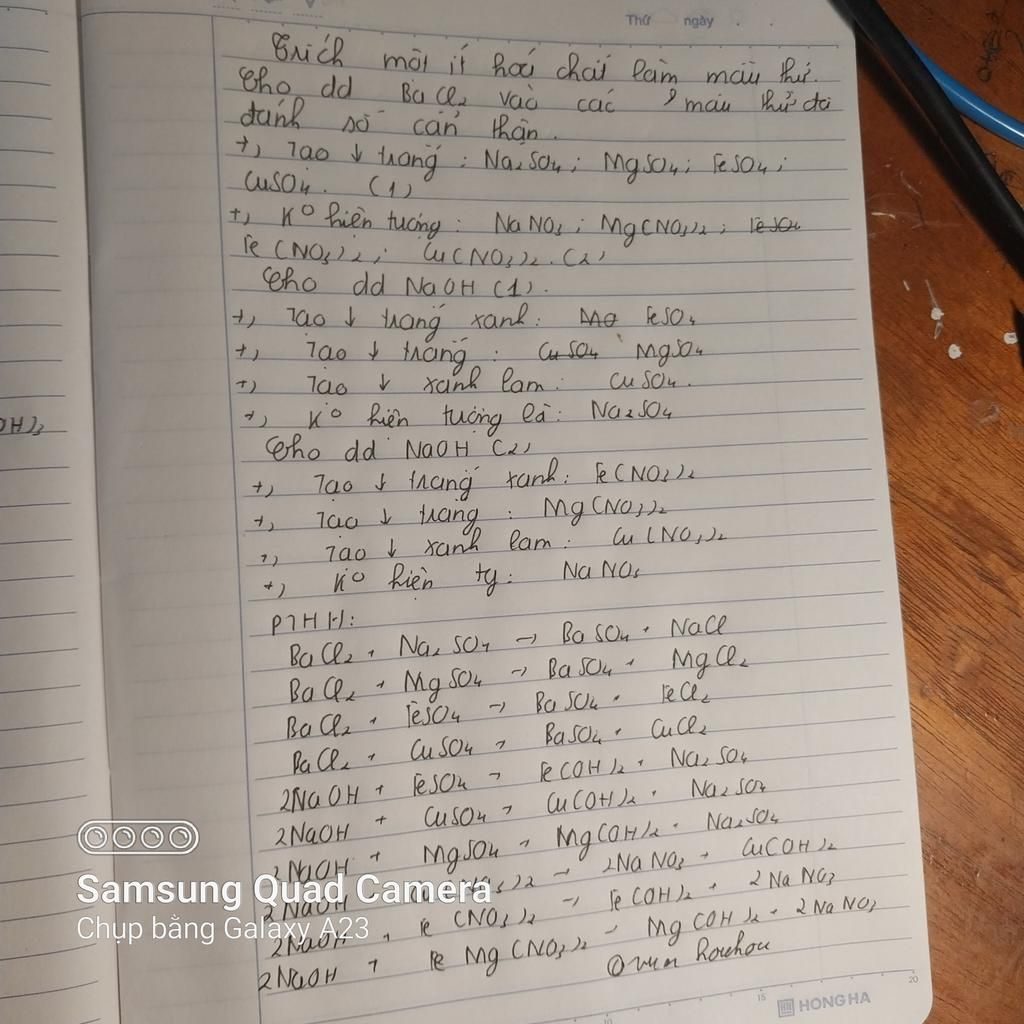 Thứ ngày
Trích một ít hoá chất làm mẫu thử.
Cho dd BaCl₂ vào các mẫu thử đã
đánh số cẩn thận.
+, Tạo ↓ trắng : Na₂SO₄ ; MgSO₄ ; FeSO₄ ;
CuSO₄. (1)
+, K° hiện tượng : NaNO₃ ; Mg(NO₃)₂ ; FeSO₄
Fe(NO₃)₂ ; Cu(NO₃)₂. (2)
Cho dd NaOH (1).
+, Tạo ↓ trắng xanh : FeSO₄
+, Tạo ↓ trắng : CuSO₄ MgSO₄
+, Tạo ↓ xanh lam : CuSO₄.
OH)₃
+, K° hiện tượng là : Na₂SO₄
Cho dd NaOH (2)
+, Tạo ↓ trắng xanh : Fe(NO₃)₂
+, Tạo ↓ trắng : Mg(NO₃)₂
+, Tạo ↓ xanh lam : Cu(NO₃)₂
+, K° hiện tg : NaNO₃
PTHH:
BaCl₂ + Na₂SO₄ → BaSO₄ + NaCl
BaCl₂ + MgSO₄ → BaSO₄ + MgCl₂
BaCl₂ + FeSO₄ → BaSO₄ + FeCl₂
BaCl₂ + CuSO₄ → BaSO₄ + CuCl₂
2NaOH + FeSO₄ → Fe(OH)₂ + Na₂SO₄
2NaOH + CuSO₄ → Cu(OH)₂ + Na₂SO₄
2NaOH + MgSO₄ → Mg(OH)₂ + Na₂SO₄
2NaOH )₂ → 2NaNO₃ + Cu(OH)₂
2NaOH + Fe(NO₃)₂ → Fe(OH)₂ + 2NaNO₃
2NaOH + Fe Mg(NO₃)₂ → Mg(OH)₂ + 2NaNO₃
Samsung Quad Camera
Chụp bằng Galaxy A23
10 15 20
HONG HA